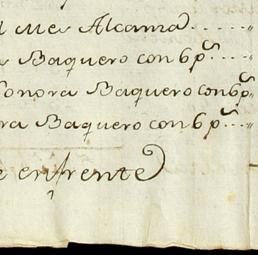 Mes Alcama
Baquero con 6 p.s
Sonora Baquero con 6 p.s
ra Baquero con 6 p.s
enfrente